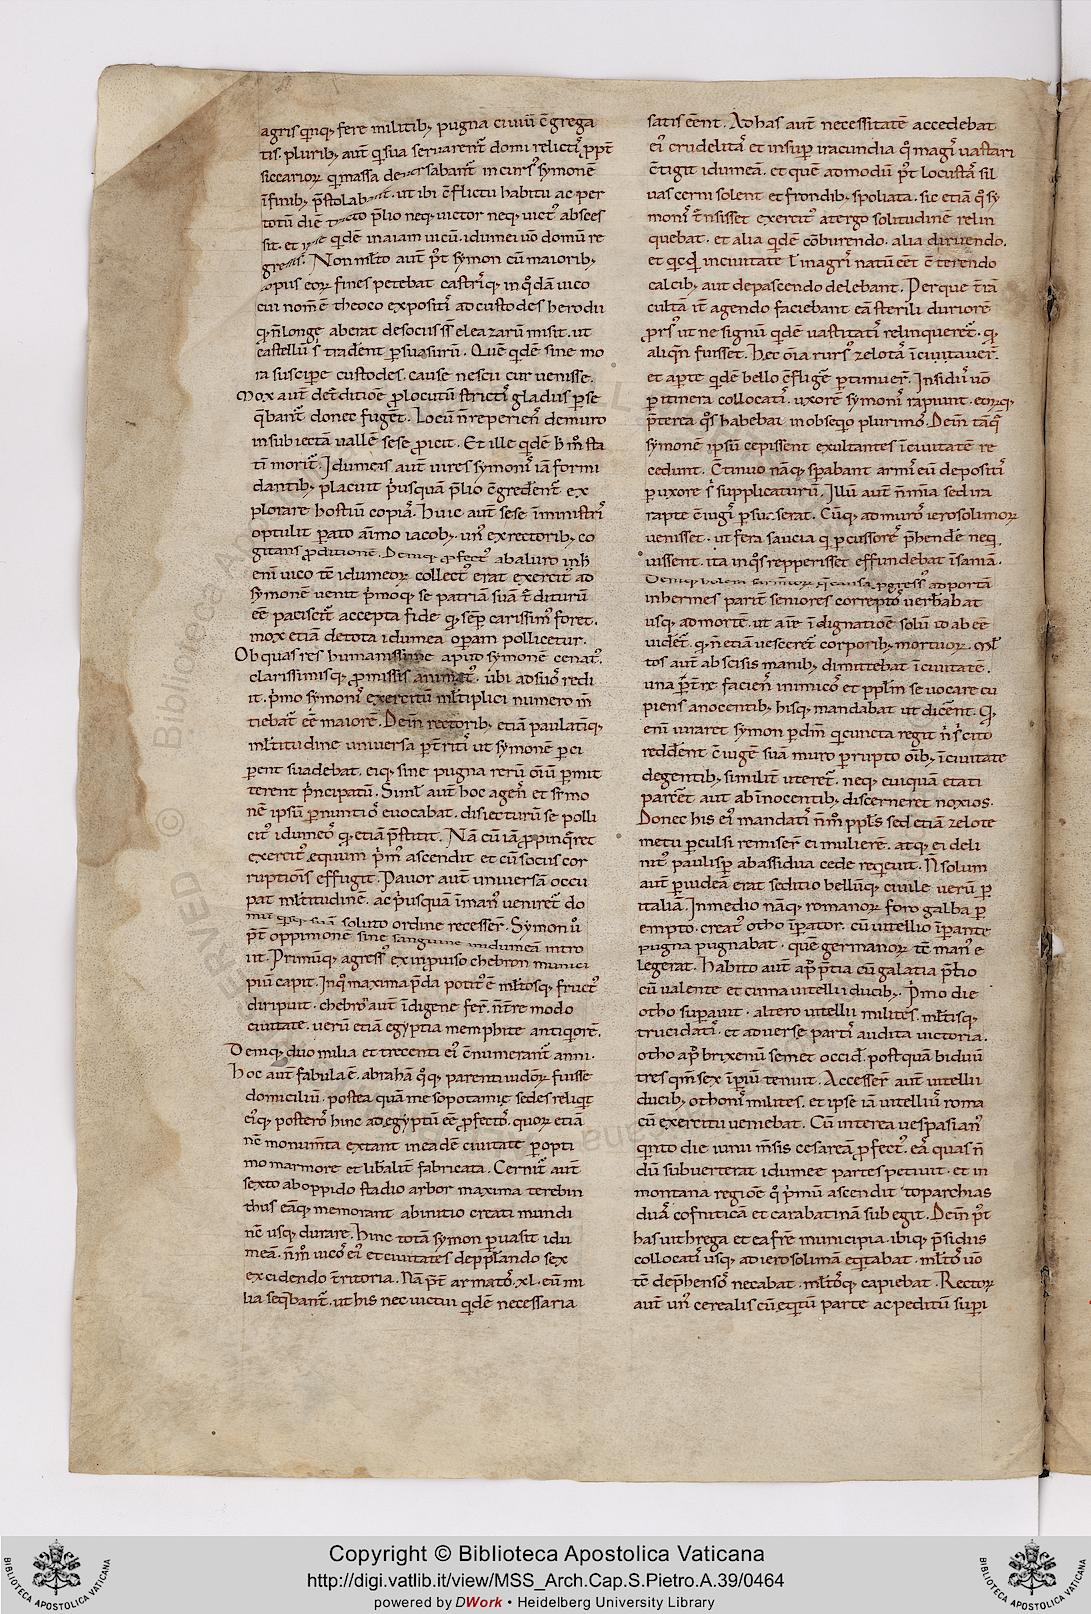 agris q̄nq; fere militib; pugna ciuiū c̄grega
tis. plurib; aut̄ q̄ sua seruarent̄ domi relicti᷒ ꝓpt̄
siccarioꝝ q̄ massa incurs᷒ symonē
īfinib; p̄stolab ut ibi c̄flictu habitu ac per
totū diē p̄lio neq; uictor neq; uict᷒ absces
sit. et quidē inaiam uicū. idumei uō domū re
Non ml̄to aut̄ p̄t symon cū maiorib;
copus eoꝝ fines petebat castriq; in q̄dā uico
cui nom̄ ē theoco expositi᷒ ad custodes herodii
q̄ n̄ longe aberat desociis s̄ eleazarū misit. ut
castellū s̄ tradent ꝑsuasurū. Quē q̄dē sine mo
ra suscipe custodes. cause nescii cur uenisse.
Mox aut̄ det̄ditiōe ꝓlocutū stricti᷒ gladiis ꝑse
q̄bant᷒ donec fuget̄. Locū n̄ reperien̄ demuro
insubiectā uallē sese ꝓicit. Et ille q̄dē sta
ti morit᷒. Idumeis aut̄ uires symoni᷒ iā formi
dantib; placuit p̄usquā p̄lio c̄gredent᷒ ex
plorare hostiū copia᷒. Huic aut̄ sese īministri᷒
optulit ꝑato aīmo iacob; un᷒ exrectorib; co
gitans ꝓditionē. Deniq; ꝓfect᷒ abaluro inh̄
enī uico tē idumeoꝝ collect᷒ erat exercit᷒ ad
symonē uenit p̄moq; se patriā suā t̄diturū
eē pacisci᷒ accepta fide q̄ sēp carissim᷒ foret.
mox etiā detota idumea opam pollicetur.
Ob quas res humanissime apud symonē cenat᷒.
clarissimisq; ꝓmissis animat᷒. ubi adsuo᷒ redi
it. p̄mo symoni᷒ exercitū ml̄tiplici numero m̄
tiebat᷒ eē maiorē. Dein̄ rectorib; etiā paulatīq;
ml̄titudine uniuersa ꝑt̄riti᷒ ut symonē ꝑci
ꝑent suadebat. eiq; sine pugna rerū oīū ꝑmit
terent p̄ncipatū. Simil᷒ aut̄ hoc agen̄ et symo
nē ipsū ꝑnuntio᷒ euocabat. disiecturū se polli
cit᷒ idumeo᷒ q̄ etiā p̄stitit. Nā cū iā ꝓpinq̄ret
exercit᷒ equum p̄m᷒ ascendit et cū sociis cor
ruptionis effugit. Pauor aut̄ uniuersā occu
pat ml̄titudinē. ac p̄usquā īman᷒ ueniret᷒ do
mū quisq; suā soluto ordine recesser̄. Symon u᷒
p̄t oppinionē sine sanguine inidumeā intro
iit. Primūq; agress᷒ ex inpuiso chebron munici
piū capit. Inq᷒ maxima p̄da potit᷒ ē ml̄tosq; fruct᷒
diripuit. chebro᷒ aut̄ īdigene fer̄. n̄t̄re modo
ciuitate. uerū etiā egyptia memphite antiq̄orē.
Deniq; duo milia et trecenti ei᷒ c̄numerant᷒ anni.
Hoc aut̄ fabula ē. abrahā q᷒q; parenti iudo᷒ꝝ fuisse
domiciliū. postea quā mesopotamie sedes reliqt
ei᷒q; postero᷒ hinc ad egyptū eē ꝓfecto᷒. quoꝝ etiā
nē monum̄ta extant ineadē ciuitate ꝑopti
mo marmore et lib̄aliū fabricata. Cernit᷒ aut̄
sexto aboppido stadio arbor maxima terebin
thus eāq; memorant abinitio creati mundi
nē usq; durare. Hinc totā symon ꝑuasit idu
meā. n̄m᷒ uico᷒ ei᷒ et ciuitates depp̄lando sex
excidendo t̄ritoria. Nā p̄t᷒ armato᷒. xl. eū mi
lia seq̄bant᷒. ut his nec uictui q̄dē necessaria
satis eent᷒. Ad has aut̄ necessitatē accedebat
ei᷒ crudelita᷒ et insuꝑ iracundia q̄ magi᷒ uastari
c̄tigit idumeā. et quē admodū p̄t locusta᷒ sil
uas cerni solent et frondib; spoliata. sic etiā q᷒ sy
moni᷒ t̄nsisset exercit᷒ atergo solitudinē relin
quebat. et alia q̄dē cōburendo. alia diruendo.
et q̄cq̄d inciuitate l̄ inagri᷒ natū eēt c̄terendo
calcib; aut depascendo delebant. Perque t̄iā
cultā it᷒ agendo faciebant eā sterili duriorē
ꝓrs᷒ ut ne signū q̄dē uastitati᷒ relinqueret᷒. q̄
aliqn̄ fuisset. Hec oīa rurs᷒ zelota᷒ īciuitauer̄.
et aꝑte q̄dē bello c̄flige᷒ ꝑtimuer̄. Insidii᷒ uō
ꝑ itinera collocati᷒. uxorē symoni᷒ rapiunt. eoꝝq;
p̄terea q᷒s habebat in obseq̄o plurimo᷒. Dein̄ tāq̄
symonē ipsū cepissent exultantes īciuitatē re
cedunt. C̄tinuo nāq; sꝑabant armi᷒ eū depositi᷒
ꝑ uxore s̄ supplicaturū. Illū aut̄ n̄ mia sed ira
rapte c̄iugi᷒ ꝑsuaserat. Cūq; ad muro᷒ ierosolimoꝝ
uenisset. ut fera saucia q̄ ꝑcussore᷒ p̄hende neq̄
uissent. ita inq᷒s repperisset effundebat īsaniā.
Deniq; holerū ꝓgress᷒ ad portā
inhermes parit̄ seniores correpto᷒ uerb̄abat
usq; ad mortē. ut aīe īdignatiōe solū ab eē
uidet᷒. q̄ n̄ etiā uesceret᷒ corporib; mortuoꝝ. ml̄
tos aut̄ abscisis manib; dimittebat īciuitatē.
una p̄t̄re facien᷒ inimico᷒ et ppl̄m se uocare cu
piens anocentib; hisq; mandabat ut dicent᷒. Q̄
enī iuraret symon ꝑ dm̄ q̄ cuncta regit n̄ s̄ cito
reddent c̄iugē suā muro ꝑrupto oīb; īciuitate
degentib; similit᷒ uteret᷒. neq; cuiquā etati
parcēt aut ab īnocentib; discerneret noxios.
Donec his ei᷒ mandati᷒ n̄m᷒ ppl̄s sed etiā zelote
metu ꝑculsi remiser̄ ei mulierē. atq; ei deli
nit᷒ paulisꝑ abassidua cede reqeuit. N̄ solum
aut̄ ꝑ iudeā erat seditio bellūq; ciuile uerū ꝑ
italiā. Inmedio nāq; romanoꝝ foro galba ꝑ
empto. creat᷒ otho īpator. cū uitellio īperante
pugna pugnabat. quē germanoꝝ tē man᷒ e
legerat. Habito aut̄ ap᷒ p̄tia cū galatia p̄lio
cū ualente et cinna uitellii ducib;. P̄mo die
otho supauit. altero uitellii milites. ml̄tisq;
trucidati᷒. et aduerse parti᷒ audita uictoria.
otho ap᷒ brixenū semet occid᷒. postquā biduū
tres q̄m sex īpiū tenuit. Accesser̄ aut̄ uitellii
ducib; othoni᷒ milites. et ipse iā uitelliu᷒ romā
cū exercitu ueniebat. Cū interea uespasian᷒
q̄nto die iunii m̄sis cesareā ꝓfect᷒. ea᷒ quas n̄
dū subuerterat idumee partes petiuit. et in
montana regiōe q᷒ p̄mū ascendit toparchias
dua᷒ cofniticā et carabatinā subegit. Dein̄ p̄t
has uithrega et eafrē municipia. ibiq; p̄sidiis
collocati᷒ usq; ad ierosolimā eq̄tabat. ml̄to᷒ uō
tē dep̄henso᷒ necabat. ml̄to᷒q; capiebat. Rectoꝝ
aut̄ un᷒ cerealis cū eq̄tū parte ac peditū supi
Copyright © Biblioteca Apostolica Vaticana
http://digi.vatlib.it/view/MSS_Arch.Cap.S.Pietro.A.39/0464
powered by DWork • Heidelberg University Library
BIBLIOTECA APOSTOLICA VATICANA
BIBLIOTECA APOSTOLICA VATICANA